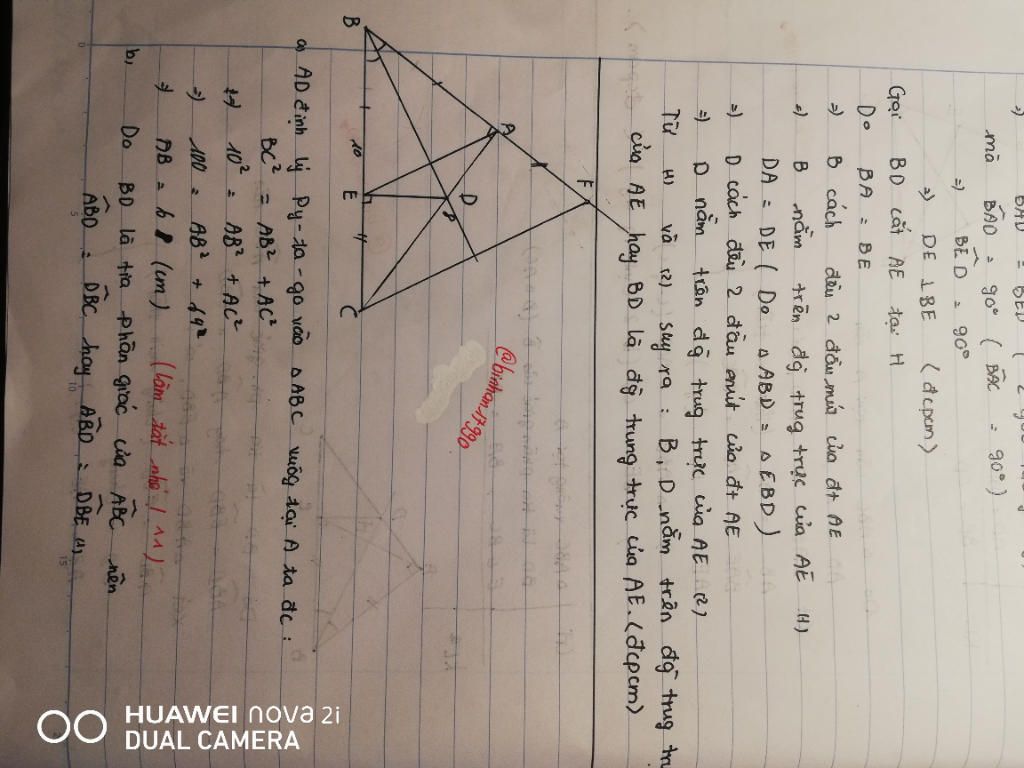 mà BAD = 90° ( BAC = 90° )
⇒ BED = 90°
⇒ DE ⊥ BE (đcpcm)
Gọi BD cắt AE tại H
Do BA = BE
⇒ B cách đều 2 đầu mút của đt AE
⇒ B nằm trên đg trug trực của AE (1)
DA = DE ( Do Δ ABD = Δ EBD )
⇒ D cách đều 2 đầu mút của đt AE
⇒ D nằm trên đg trug trực của AE (2)
Từ (1) và (2) suy ra : B, D nằm trên đg trug
của AE hay BD là đg trung trực của AE. (đcpcm)
F
A
D
B
10
E
C
a) AD định lý Py-ta-go vào Δ ABC vuông tại A ta đc :
BC² = AB² + AC²
10² = AB² + AC²
⇒ 100 = AB² +
⇒ AB = (cm) (làm tắt nhó ! ^^)
b, Do BD là tia phân giác của ABC nên
ABD = DBC hay ABD = DBE (1)
0
5
10
15
HUAWEI nova 2i
DUAL CAMERA